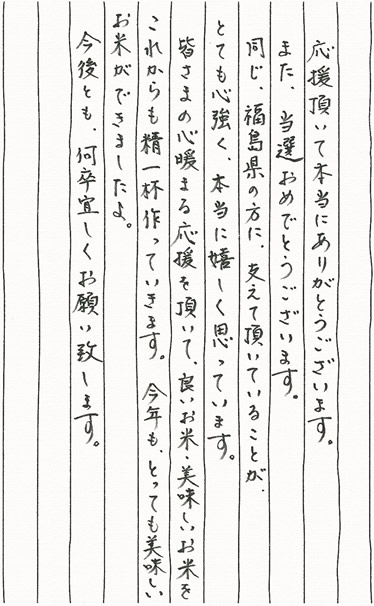 応援頂いて本当にありがとうございます。
また、当選おめでとうございます。
同じ、福島県の方に、支えて頂いていることが、
とても心強く、本当に嬉しく思っています。
皆さまの心暖まる応援を頂いて、良いお米・美味しいお米を
これからも精一杯作っていきます。今年も、とっても美味しい
お米ができましたよ。
今後とも、何卒宜しくお願い致します。